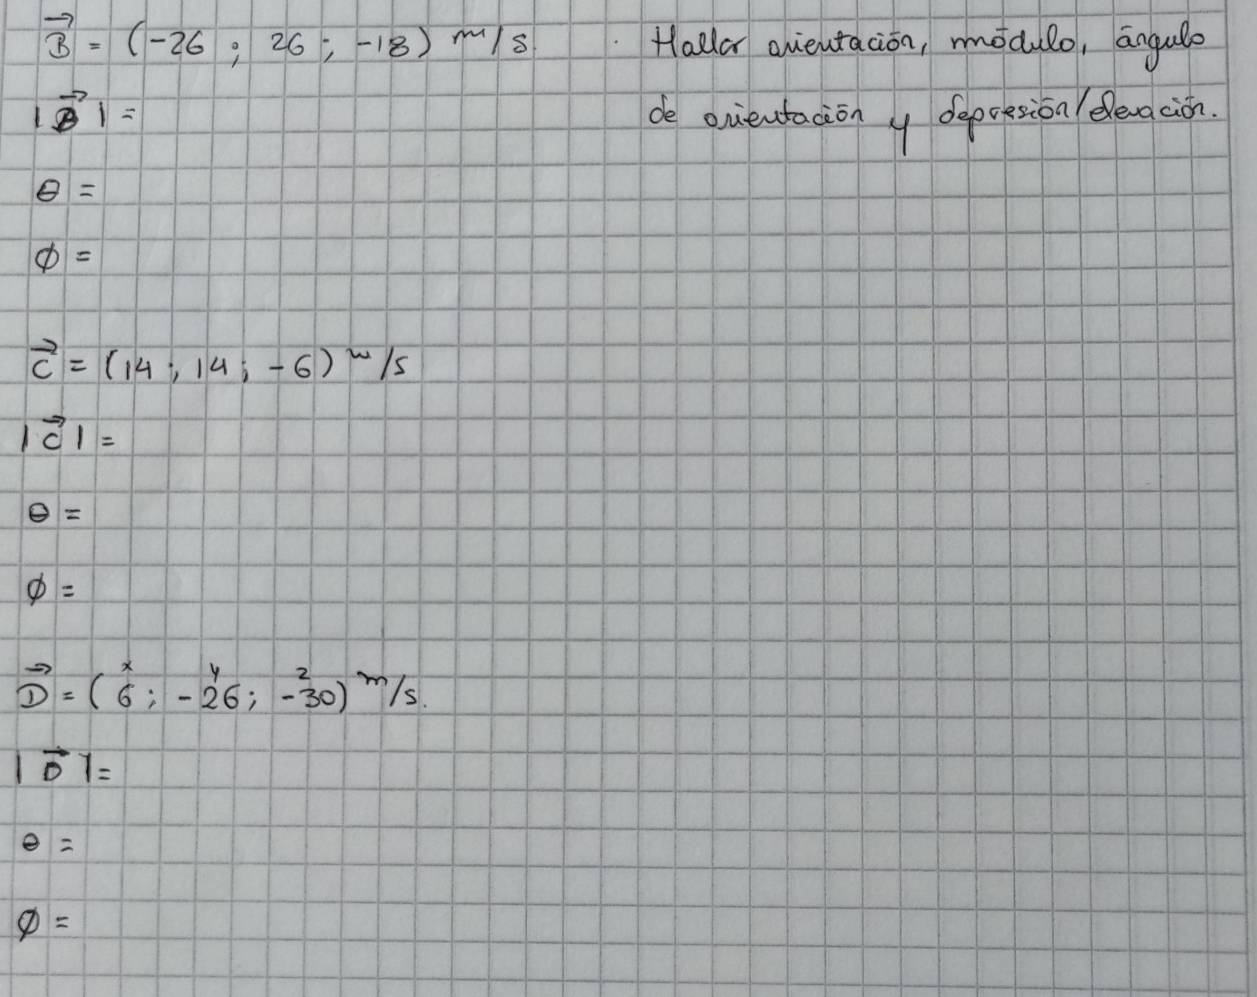 B = (-26 ; 26 ; -18) m/s. Hallar orientación, módulo, ángulo
|B| = de orientación y depresión/elevación.
θ =
φ =
C = (14 ; 14 ; -6) m/s
|C| =
θ =
φ =
x y z
D = (6 ; -26 ; -30) m/s.
|D| =
θ =
φ =